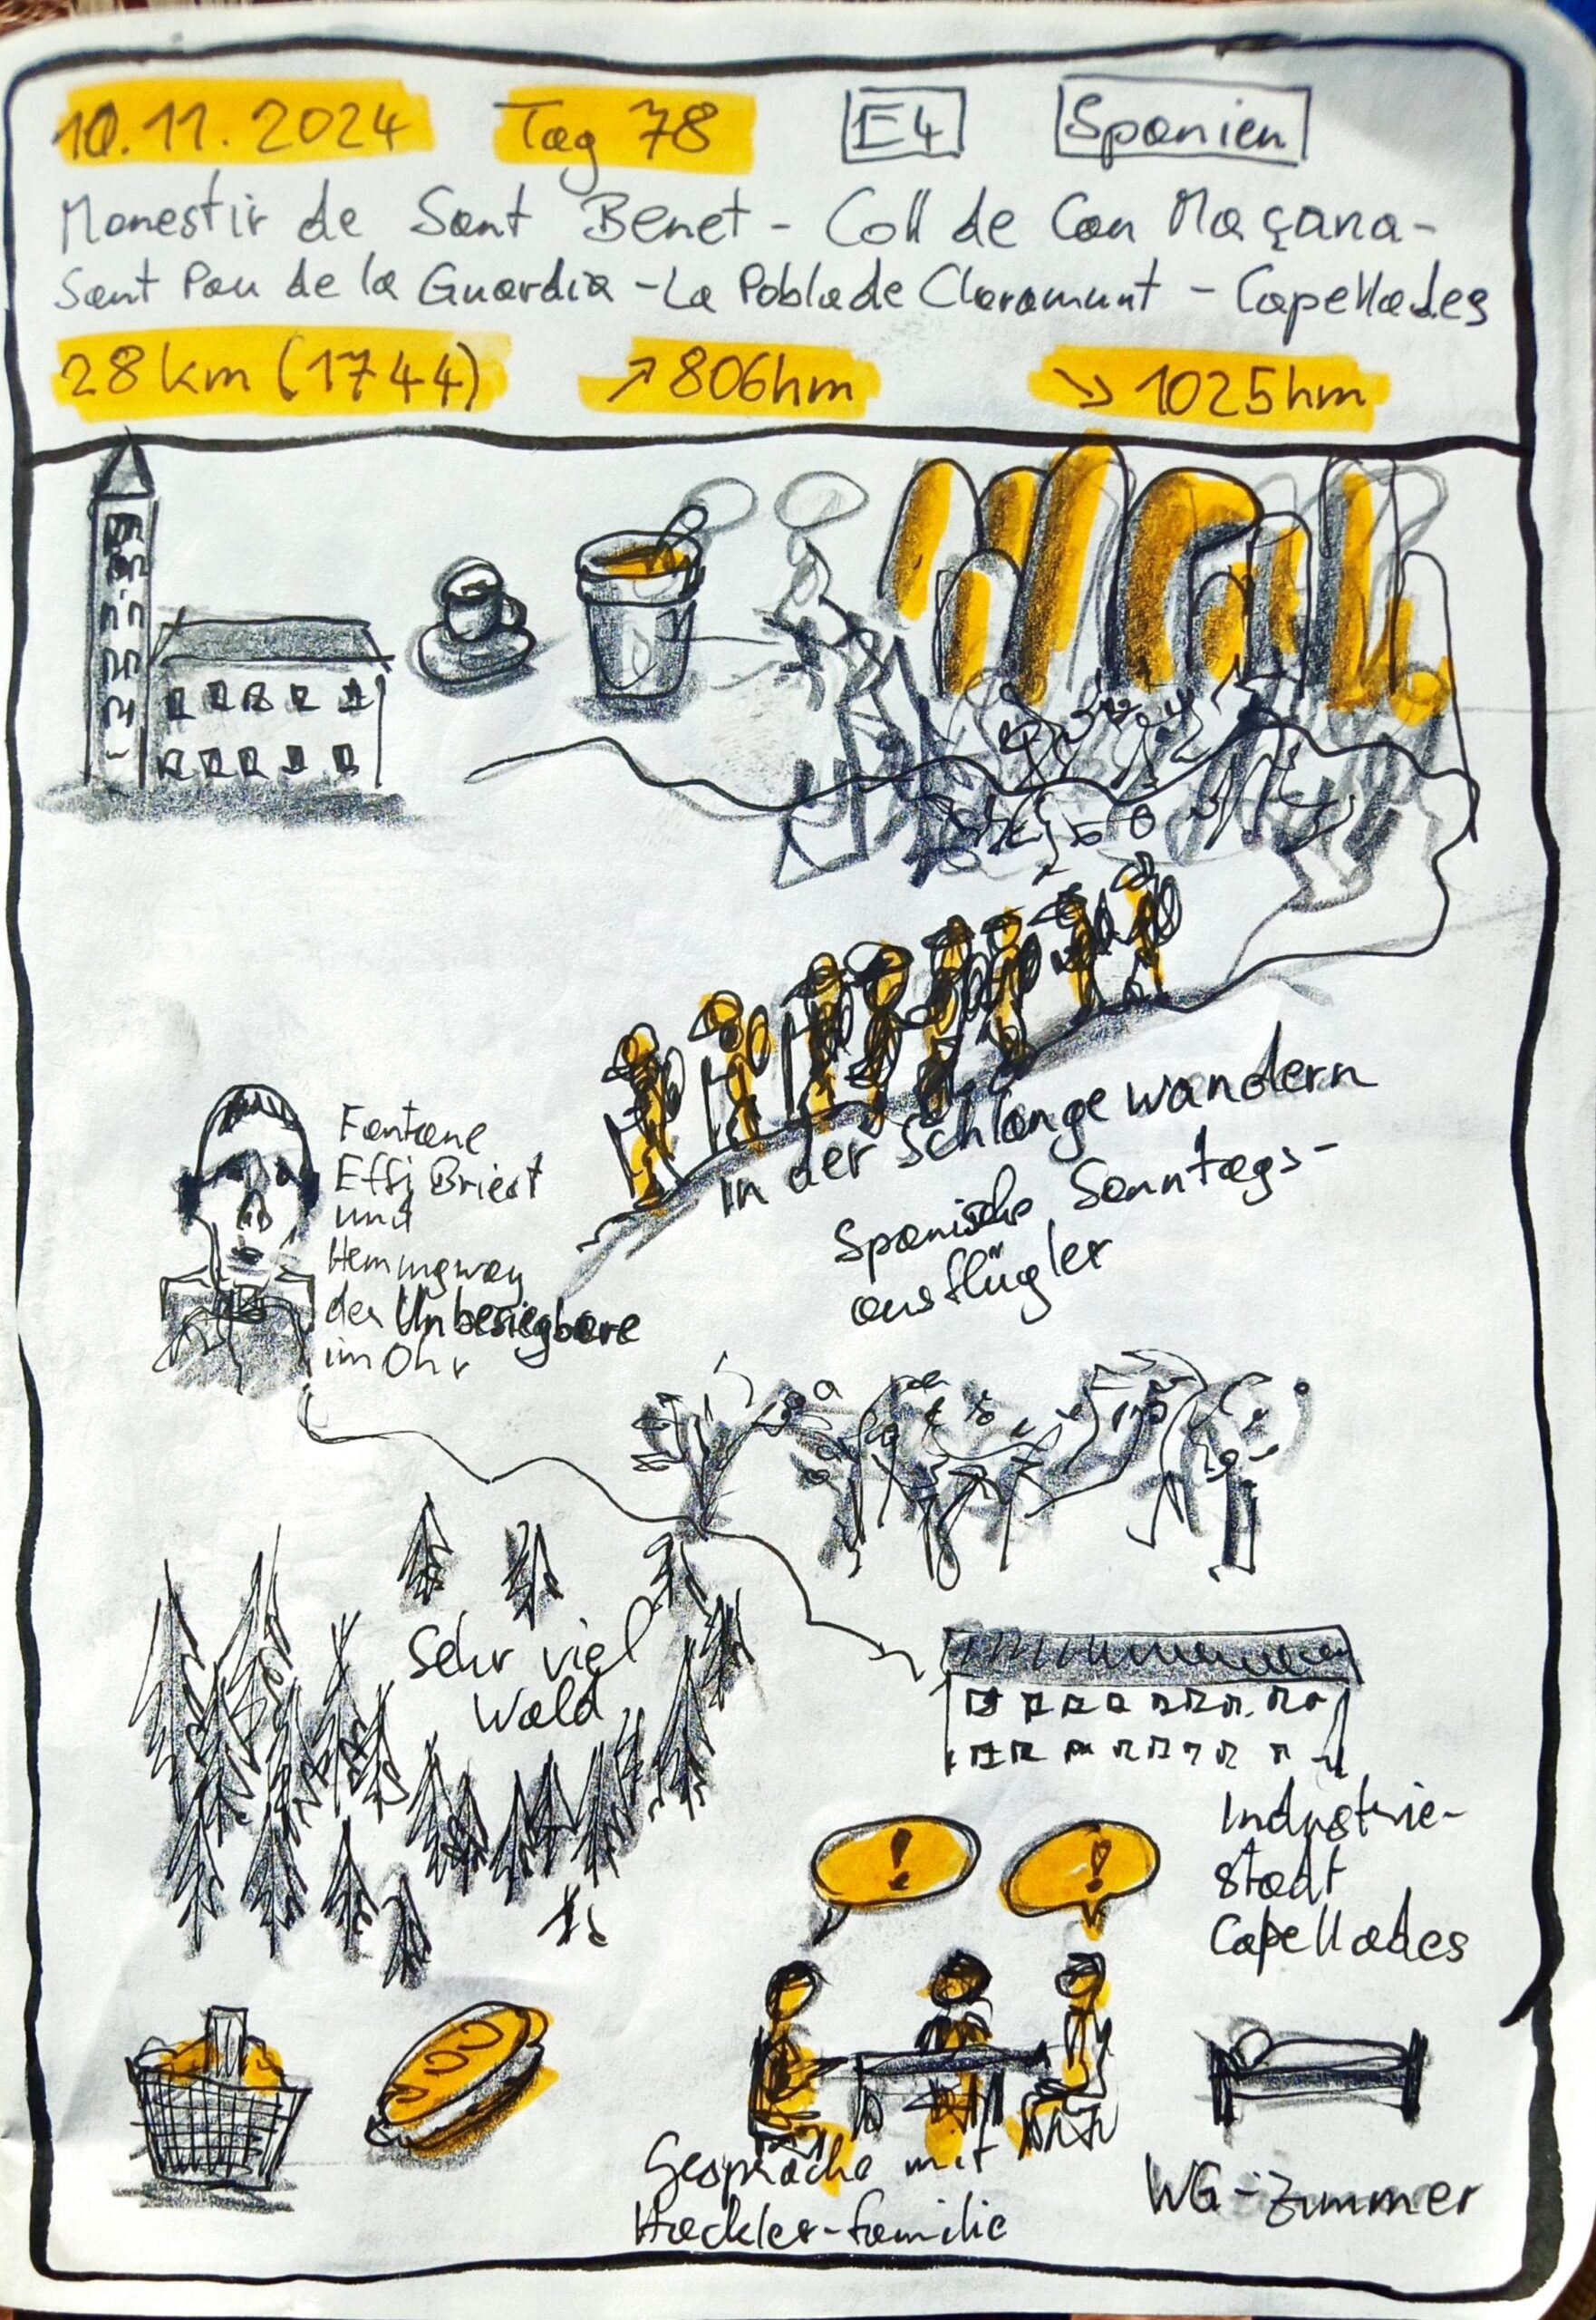 10.11.2024 Tag 78 E4 Spanien
Monestir de Sant Benet - Coll de Can Maçana -
Sant Pau de la Guardia - La Pobla de Claramunt - Capellades
28 km (1744) ↗ 806hm ↘ 1025hm
in der Schlange wandern
Spanische Sonntags-
ausflügler
Fontane
Effi Briest
und
Hemingway
der Unbesiegbare
im Ohr
Sehr viel
Wald
Industrie-
stadt
Capellades
!
!
Gespräche mit
Hackler-familie
WG-Zimmer